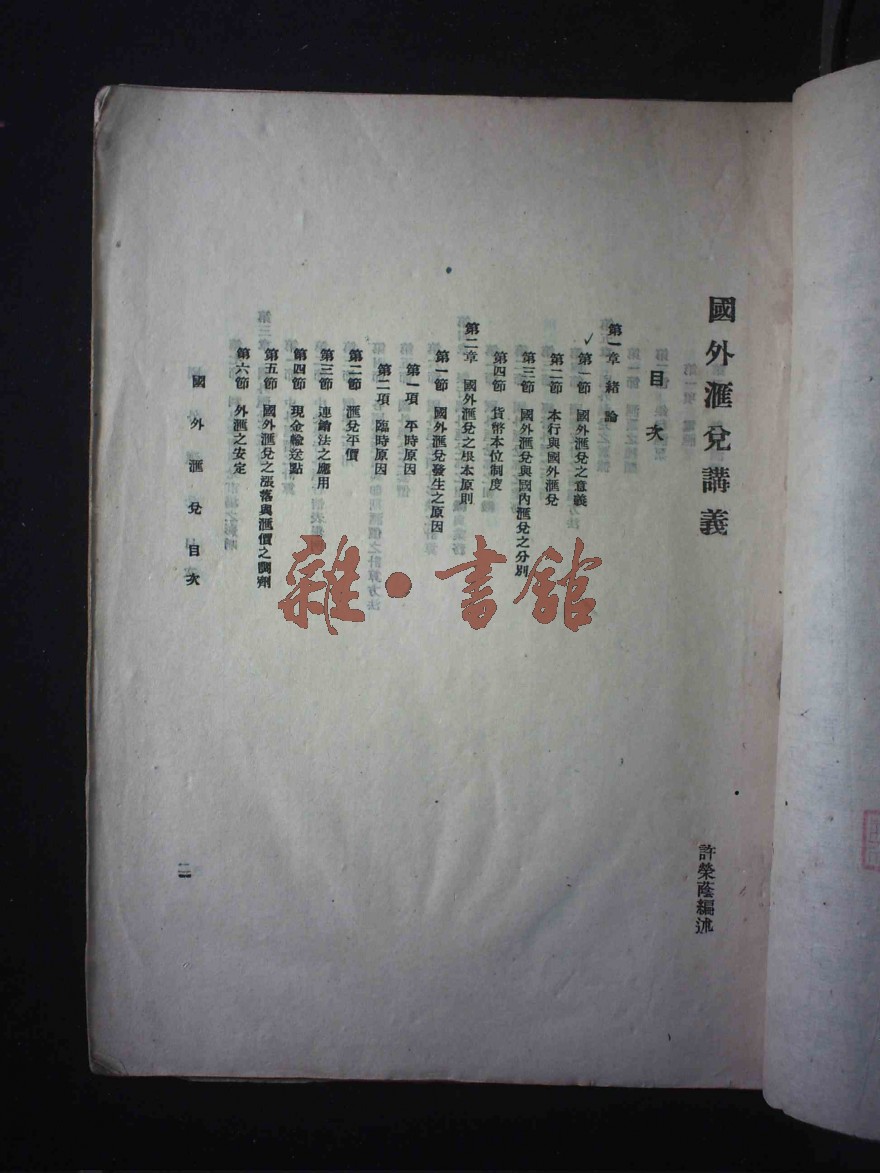 國外滙兌講義
許榮蔭編述
目次
第一章 緒論
第一節 國外滙兌之意義
第二節 本行與國外滙兌
第三節 國外滙兌與國內滙兌之分別
第四節 貨幣本位制度
第二章 國外滙兌之根本原則
第一節 國外滙兌發生之原因
第一項 平時原因
第二項 臨時原因
第二節 滙兌平價
第三節 連鎖法之應用
第四節 現金輸送點
第五節 國外滙兌之漲落與滙價之調劑
第六節 外滙之安定
國外滙兌 目次
二
雜·書館